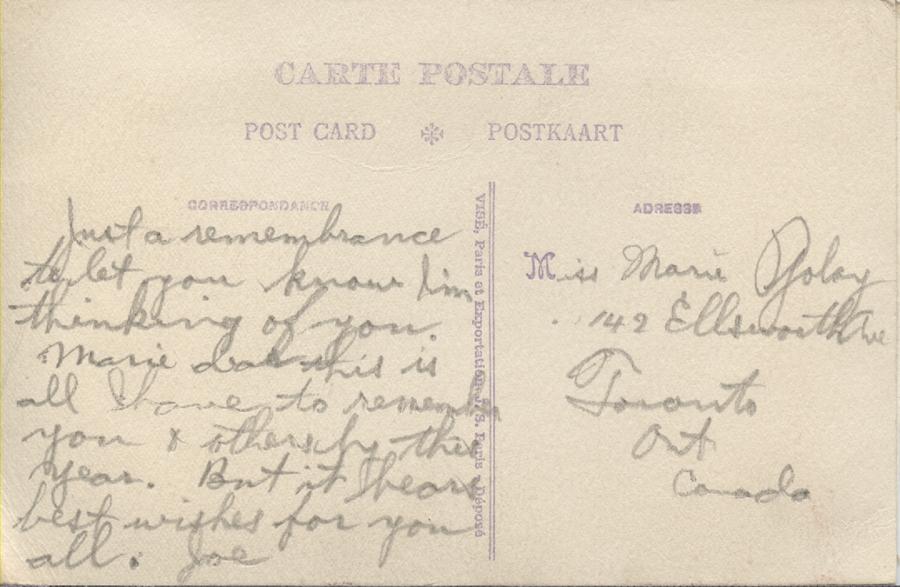 CARTE POSTALE
POST CARD ❉ POSTKAART
CORRESPONDANCE
Just a remembrance
to let you know I'm
thinking of you.
Marie dear this is
all I have to remember
you & others by this
year. But it bears
best wishes for you
all. Joe
VISÉ, Paris et Exportation, J. S. Paris - Déposé
ADRESSE
Miss Marie
142 Ellsworth Ave
Toronto
Ont
Canada